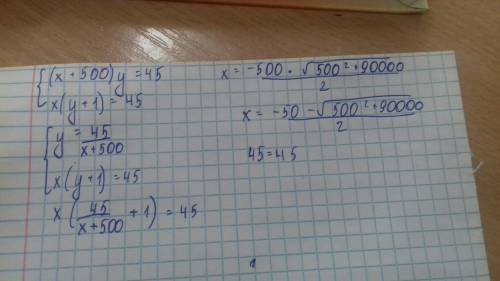 { (x + 500) y = 45
x(y + 1) = 45
{ y = 45/(x+500)
x(y+1) = 45
x(45/(x+500) + 1) = 45
x = (-500 + √(500² + 90000))/2
x = (-50 - √(500² + 90000))/2
45 = 45